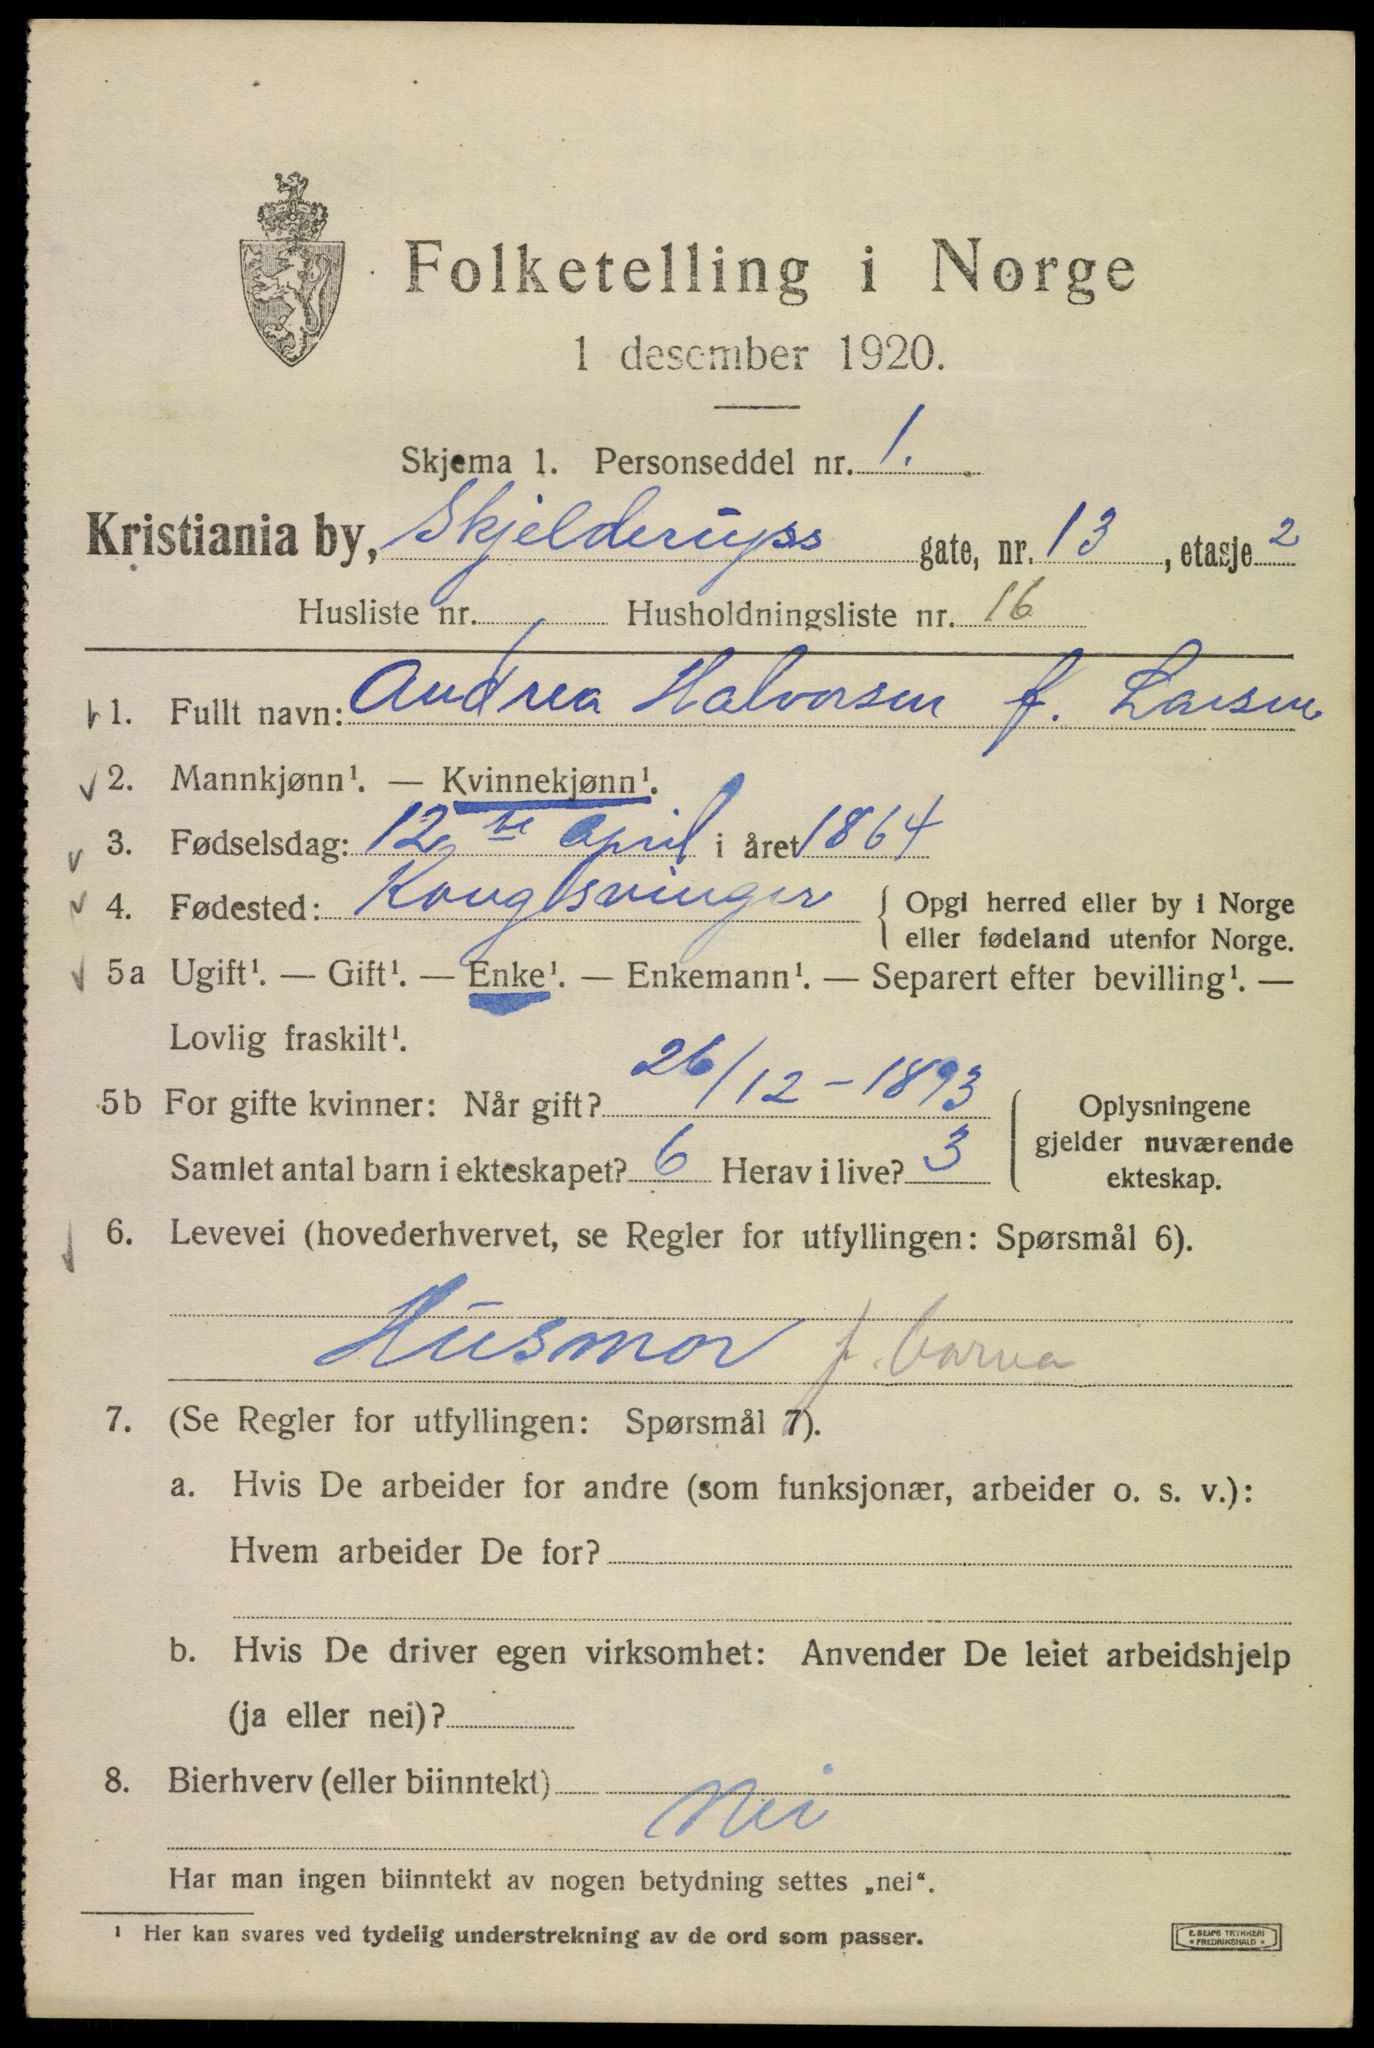 Folketelling i Norge
1 desember 1920.
Skjema 1. Personseddel nr. 1.
Kristiania by, Skjelderups gate, nr. 13, etasje 2
Husliste nr. 1 Husholdningsliste nr. 16
1. Fullt navn: Andrea Halvorsen f. Larsen
2. Mannkjønn¹. — Kvinnekjønn¹.
3. Fødselsdag: 12te april i året 1864
4. Fødested: Kongsvinger { Opgi herred eller by i Norge
eller fødeland utenfor Norge.
5a Ugift¹. — Gift¹. — Enke¹. — Enkemann¹. — Separert efter bevilling¹. —
Lovlig fraskilt¹.
5b For gifte kvinner: Når gift? 26/12 - 1893
Samlet antal barn i ekteskapet? 6 Herav i live? 3
Oplysningene
gjelder nuværende
ekteskap.
6. Levevei (hovederhvervet, se Regler for utfyllingen: Spørsmål 6).
Husmor f. barna
7. (Se Regler for utfyllingen: Spørsmål 7).
a. Hvis De arbeider for andre (som funksjonær, arbeider o. s. v.):
Hvem arbeider De for?
b. Hvis De driver egen virksomhet: Anvender De leiet arbeidshjelp
(ja eller nei)?
8. Bierhverv (eller biinntekt)
Nei
Har man ingen biinntekt av nogen betydning settes „nei“.
¹ Her kan svares ved tydelig understrekning av de ord som passer.
E. SEM'S TRYKKERI
* FREDRIKSHALD *